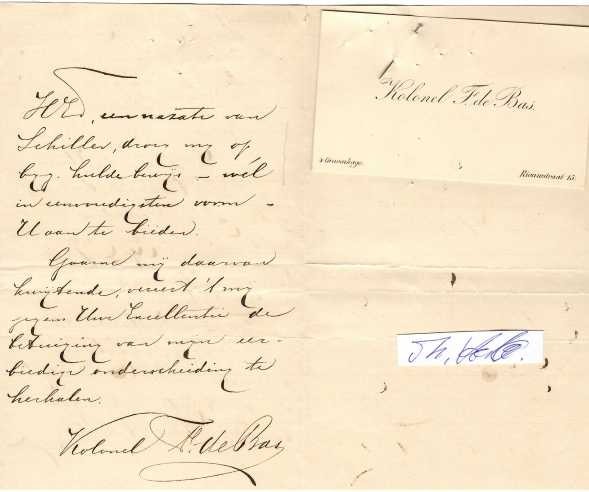 HEd, een nazate van
Schiller, droeg mij op
byg. huldebewijs – wél
in eenvoudigsten vorm –
U aan te bieden.
Gaarne mij daarvan
kwijtende, vereert 't mij
jegens Uwe Excellentie de
betuiging van mijn eer-
biedige onderscheiding te
herhalen.
Kolonel F. de Bas
Kolonel F. de Bas.
's Gravenhage.
Riouwstraat 15.
Th.